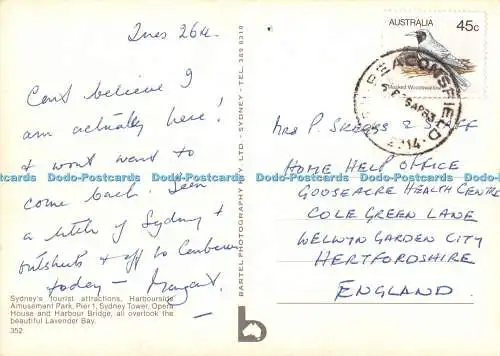 Tues 26th.
Can't believe I
am actually here!
& won't want to
come back. Seen
a bit of Sydney +
outskirts & off to Canberra
today — Margaret.
Sydney's tourist attractions, Harbourside
Amusement Park, Pier 1, Sydney Tower, Opera
House and Harbour Bridge, all overlook the
beautiful Lavender Bay.
352
BARTEL PHOTOGRAPHY PTY. LTD. - SYDNEY - TEL. 389 8310
b
AUSTRALIA 45c
Masked Woodswallow
BEACONSFIELD
2014
Mrs P. Skeggs & Staff
HOME HELP OFFICE
GOOSEACRE HEALTH CENTRE
COLE GREEN LANE
WELWYN GARDEN CITY
HERTFORDSHIRE
ENGLAND.
Dodo-Postcards Dodo-Postcards Dodo-Postcards Dodo-Postcards Dodo-Postcards